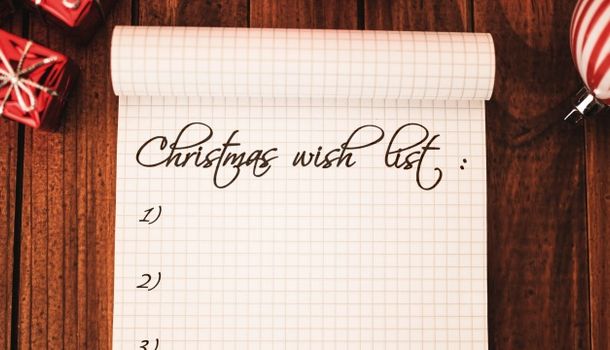 Christmas wish list :
1)
2)
3)